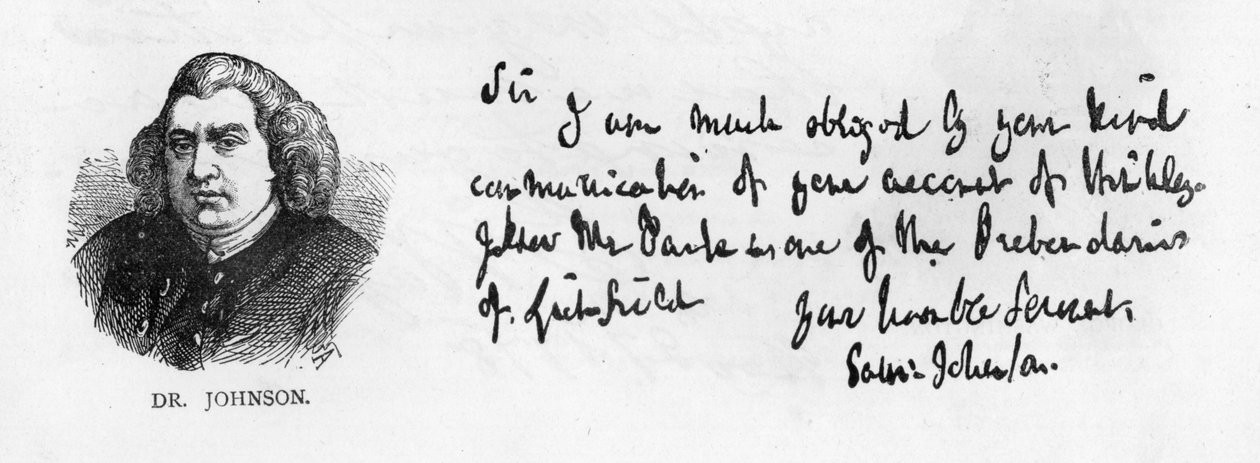 Sir
I am much obliged by your kind
communication of your account of Hinkley.
I know Mr is one of the Prebendaries
of Lichfield your humble Servant.
Sam: Johnson.
DR. JOHNSON.